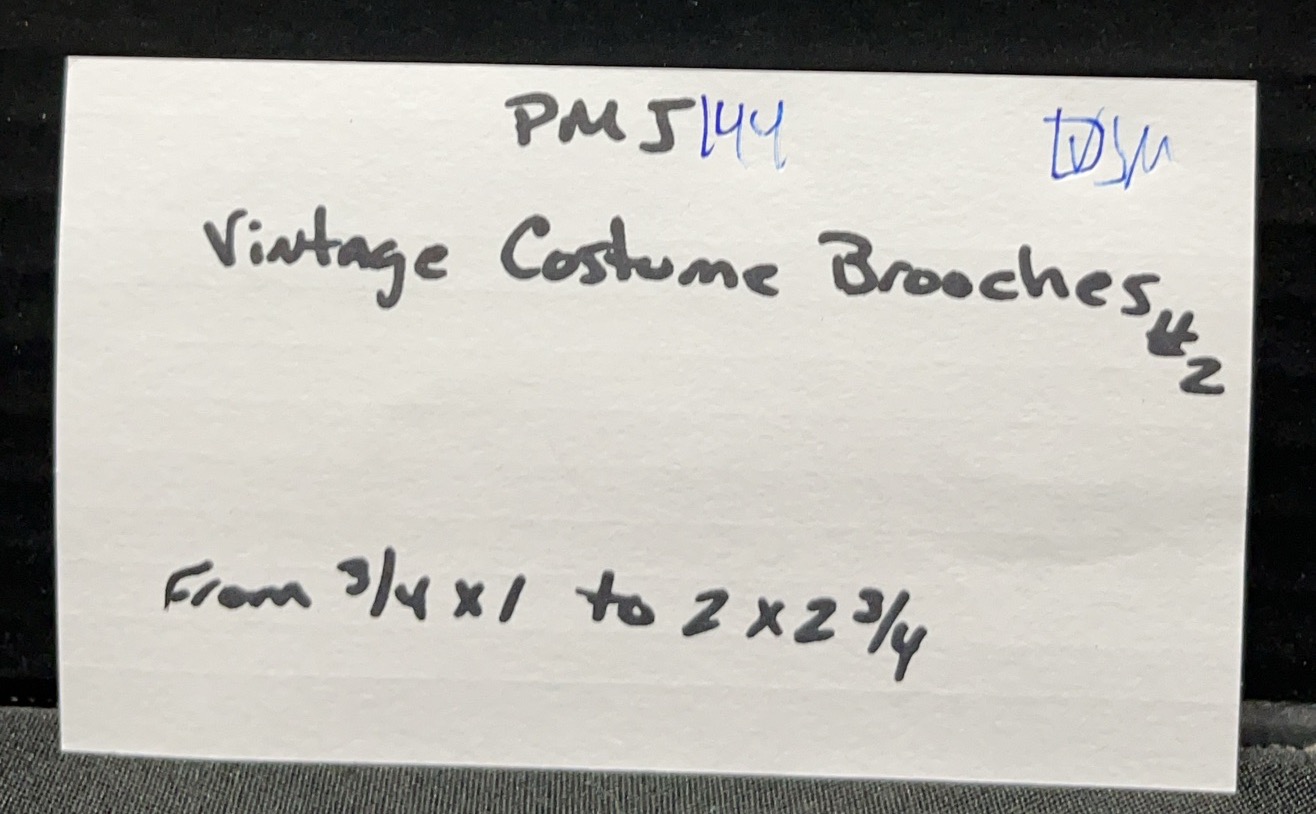 PMJ144
Vintage Costume Brooches #2
From 3/4 x 1 to 2 x 2 3/4